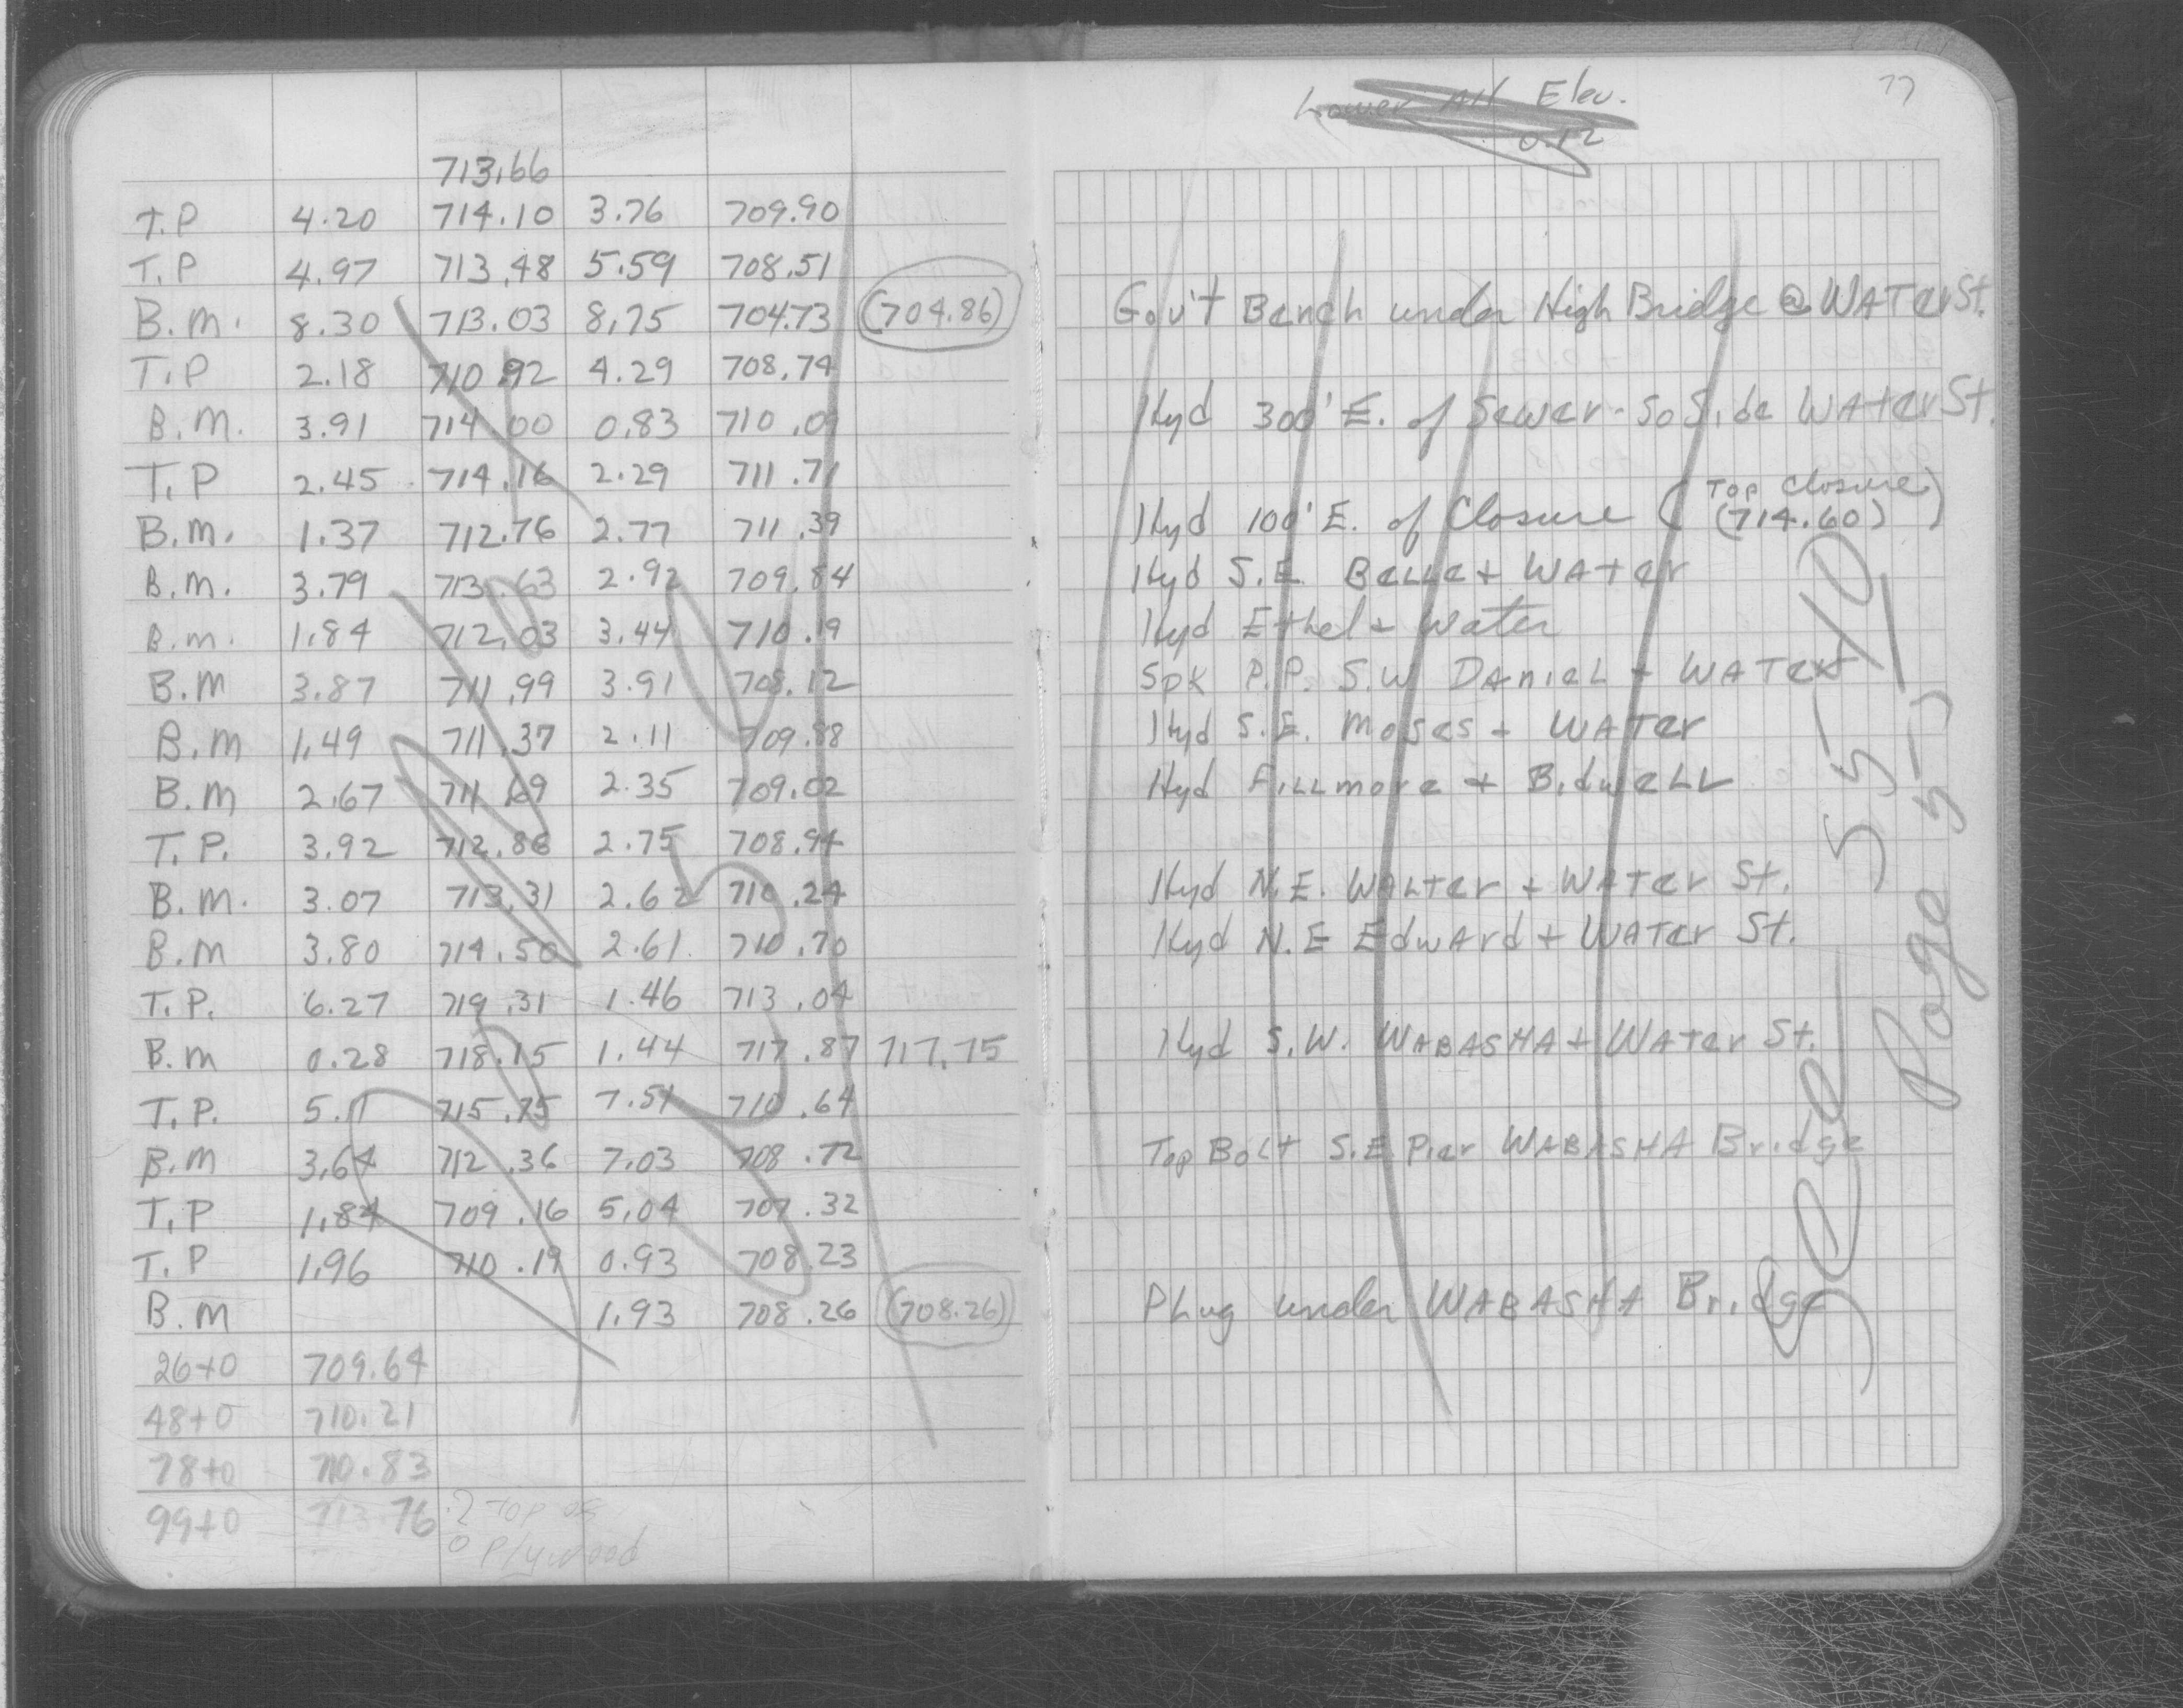 713.66
T.P 4.20 714.10 3.76 709.90
T.P 4.97 713.48 5.59 708.51
B.M. 8.30 713.03 8.75 704.73 (704.86)
T.P 2.18 710.92 4.29 708.74
B.M. 3.91 714.00 0.83 710.09
T.P 2.45 714.16 2.29 711.71
B.M. 1.37 712.76 2.77 711.39
B.M. 3.79 713.63 2.92 709.84
B.M. 1.84 712.03 3.44 710.19
B.M 3.87 711.99 3.91 708.12
B.M 1.49 711.37 2.11 709.88
B.M 2.67 711.69 2.35 709.02
T.P. 3.92 712.86 2.75 708.94
B.M. 3.07 713.31 2.62 710.24
B.M 3.80 714.50 2.61 710.70
T.P. 6.27 719.31 1.46 713.04
B.M 0.28 718.15 1.44 717.87 717.75
T.P. 5.11 715.75 7.51 710.64
B.M 3.64 712.36 7.03 708.72
T.P 1.84 709.16 5.04 707.32
T.P 1.96 710.19 0.93 708.23
B.M 1.93 708.26 (708.26)
26+0 709.64
48+0 710.21
78+0 710.83
99+0 713.76 .2 Top of
0 Plywood
77
Lower All Elev.
0.12
Gov't Bench under High Bridge @ Water St.
Hyd 300' E. of Sewer - So Side Water St.
Hyd 100' E. of Closure (Top Closure
(714.60))
Hyd S.E. Belle + Water
Hyd Ethel + Water
Spk P.P. S.W Daniel + Water
Hyd S.E. Moses + Water
Hyd Fillmore + Bidwell
Hyd N.E. Walter + Water St.
Hyd N.E Edward + Water St.
Hyd S.W. Wabasha + Water St.
Top Bolt S.E. Pier Wabasha Bridge
Plug under Wabasha Bridge
Page